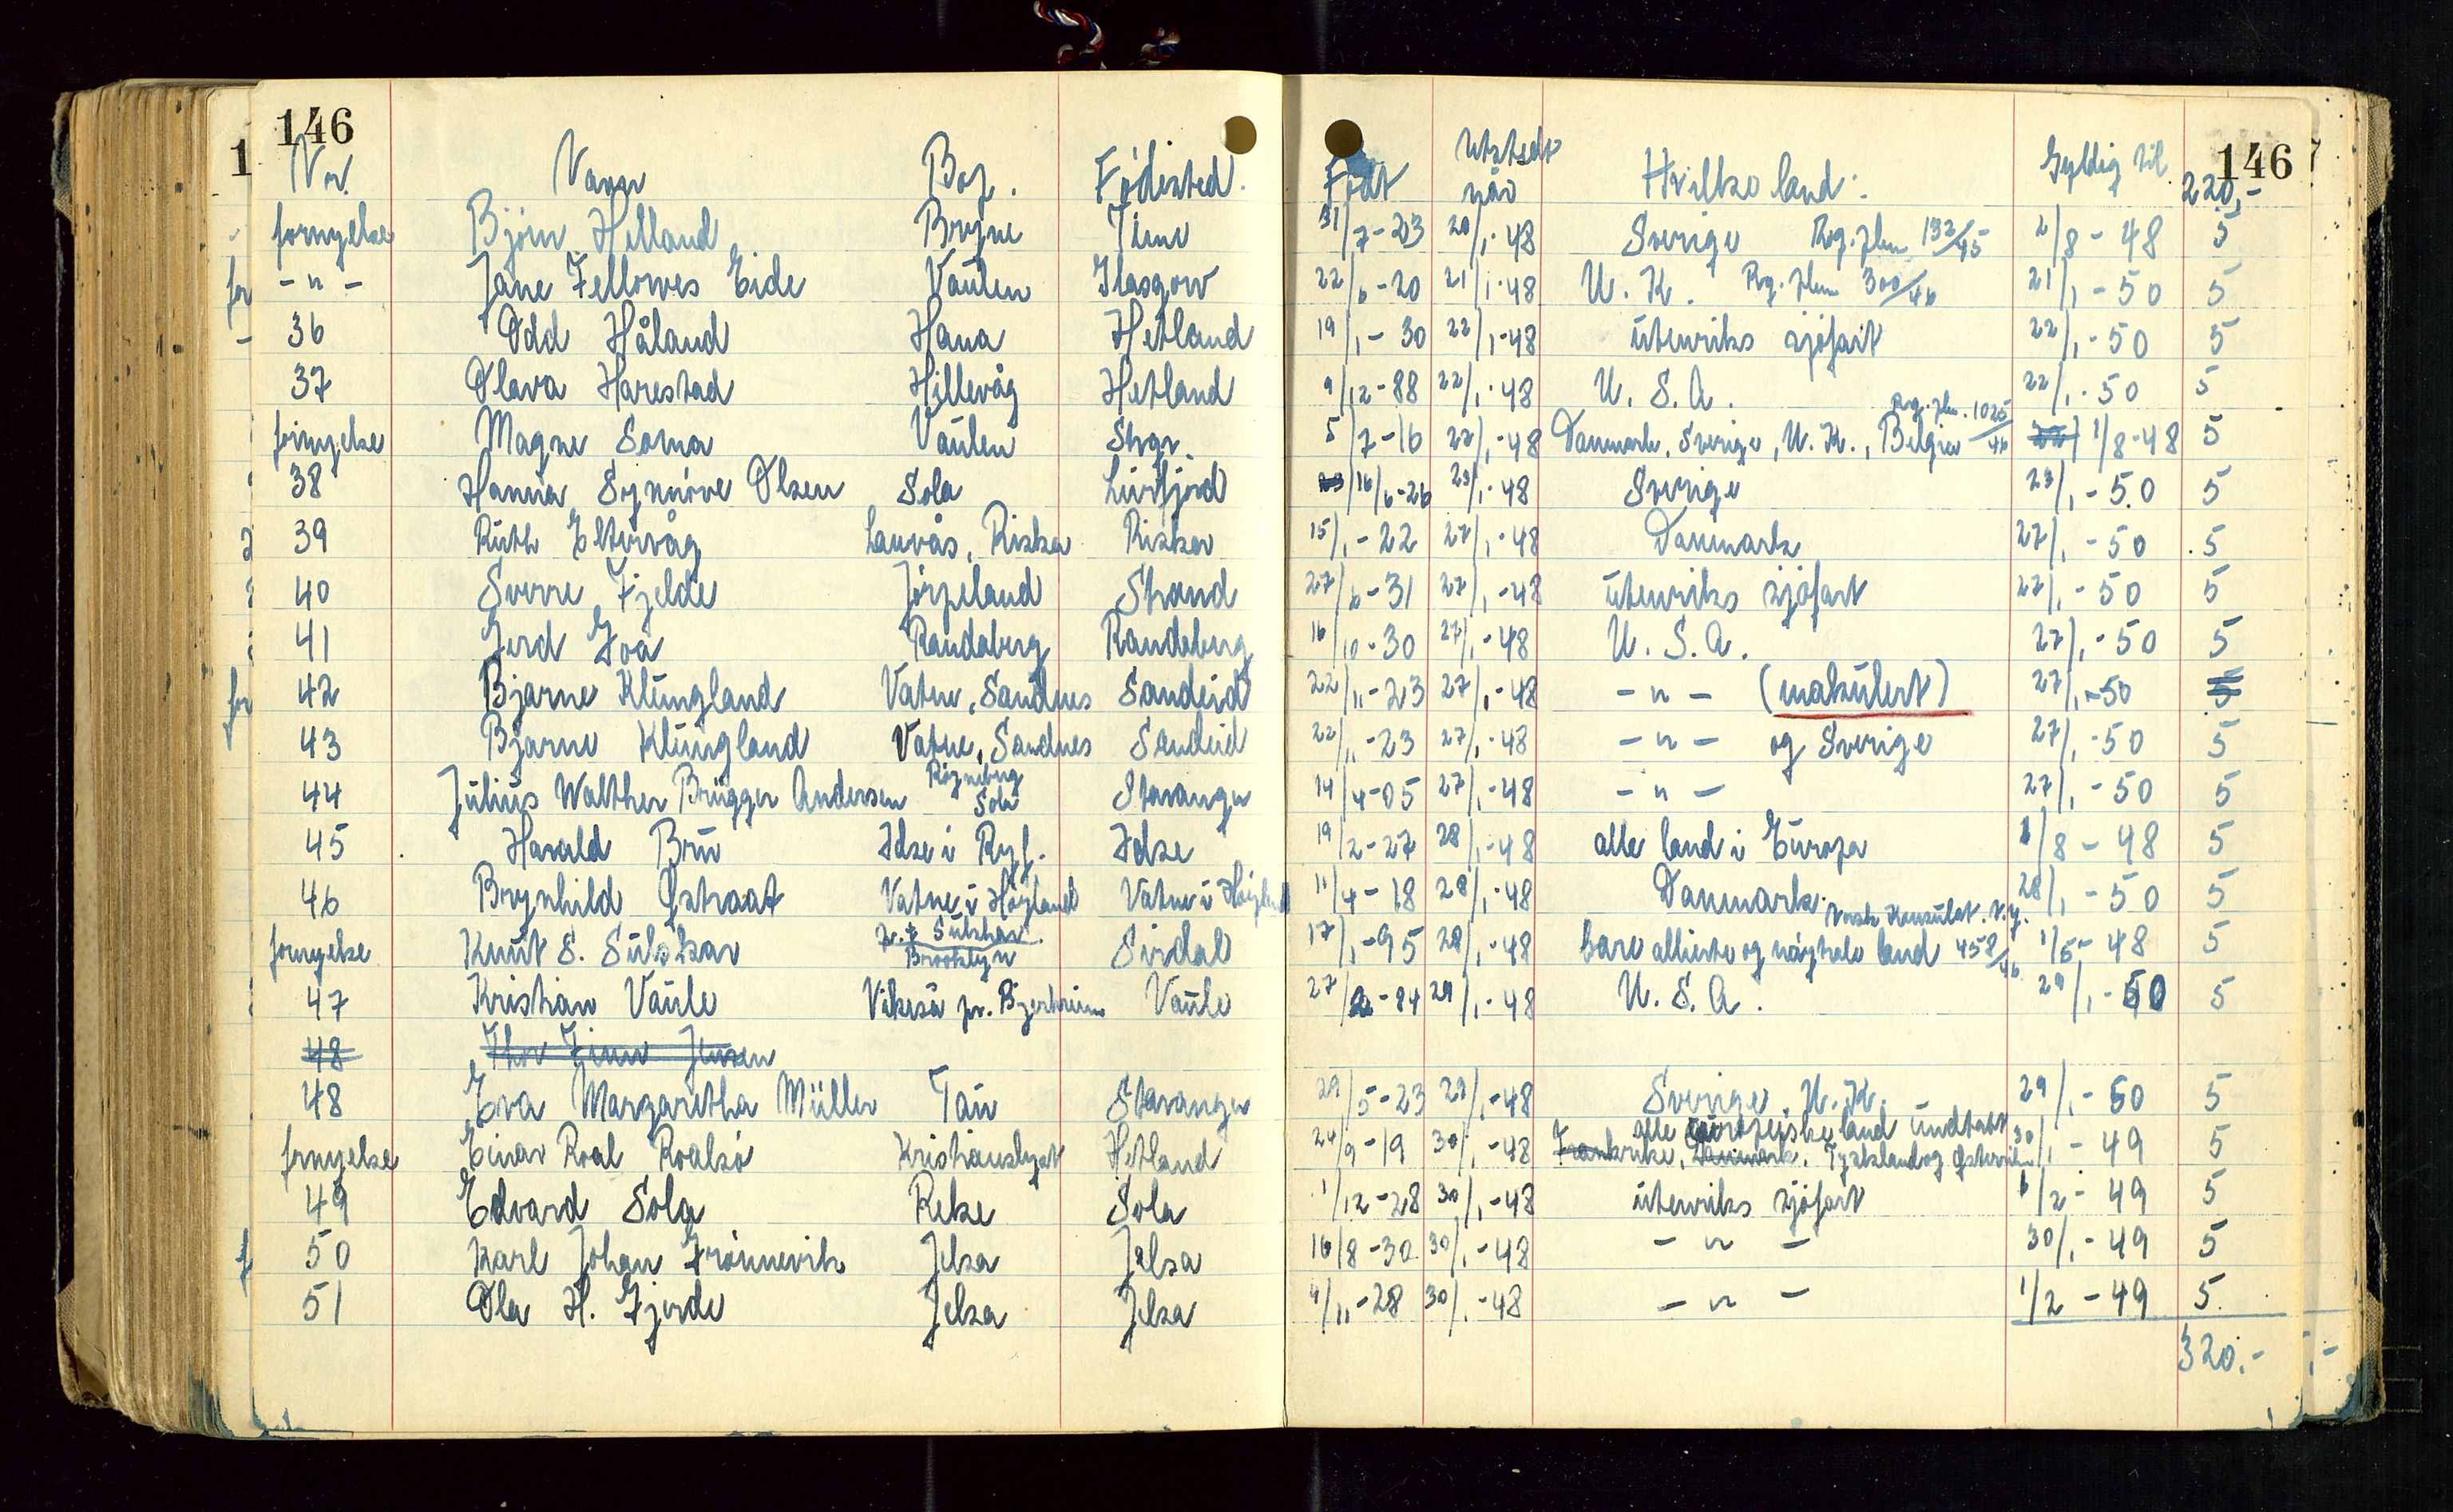 146 146
Nr. Navn Bop. Födested. Födt Utstedt når Hvilke land: Gyldig til 220,-
fornyelse Björn Helland Bryne Time 31/7-23 20/1-48 Sverige Reg. 132/45 2/8-48 5
-"- Jane Fellowes Eide Vaulen Glasgow 22/6-20 21/1-48 U.K. Rg. 300/46 21/1-50 5
36 Odd Håland Hana Hetland 19/1-30 22/1-48 utenriks sjöfart 22/1-50 5
37 Olava Harestad Hillevåg Hetland 9/12-88 22/1-48 U.S.A. 22/1-50 5
fornyelse Magne Soma Vaulen Stvgr. 5/7-16 22/1-48 Danmark, Sverige, U.K., Belgien Rg. 1025/46 1/8-48 5
38 Hanna Synnöve Olsen Sola Lurfjord 16/6-26 23/1-48 Sverige 23/1-50 5
39 Ruth Eltervåg Lauvås, Riska Riska 15/1-22 27/1-48 Danmark 27/1-50 5
40 Sverre Fjelde Jörpeland Strand 27/6-31 27/1-48 utenriks sjöfart 27/1-50 5
41 Gerd Goa Randaberg Randaberg 16/10-30 27/1-48 U.S.A. 27/1-50 5
42 Bjarne Klungland Vatne, Sandnes Sandeid 22/1-23 27/1-48 -"- (makulert) 27/1-50 5
43 Bjarne Klungland Vatne, Sandnes Sandeid 22/1-23 27/1-48 -"- og Sverige 27/1-50 5
44 Julius Walther Brügger Andersen Röyneberg Sola Stavanger 14/4-05 27/1-48 -"- 27/1-50 5
45 Harald Bru Idse i Ryf. Idse 19/2-27 28/1-48 alle land i Europa 1/8-48 5
46 Brynhild Østraat Vatne i Höyland Vatne i Höyland 11/4-18 28/1-48 Danmark. 28/1-50 5
fornyelse Knut S. Suleskar p.t. Suleskar Brooklyn Sirdal 17/1-95 28/1-48 bare allierte og nöytrale land Norsk Konsulat. N.Y. 458/46 1/5-48 5
47 Kristian Vaule Vikeså pr. Bjerkreim Vaule 27/2-84 29/1-48 U.S.A. 29/1-50 5
48 Thor Finn Jensen
48 Eva Margaretha Müller Tau Stavanger 29/5-23 29/1-48 Sverige, U.K. 29/1-50 5
fornyelse Einar Roal Roalsö Kristianslyst Hetland 24/9-19 30/1-48 alle europeiske land undtatt Frankrike, Danmark, Tyskland og Østerrike 30/1-49 5
49 Edvard Sola Reke Sola 1/12-28 30/1-48 utenriks sjöfart 1/2-49 5
50 Karl Johan Frönnevik Jelsa Jelsa 16/8-30 30/1-48 -"- 30/1-49 5
51 Ola H. Gjerde Jelsa Jelsa 4/11-28 30/1-48 -"- 1/2-49 5
320,-